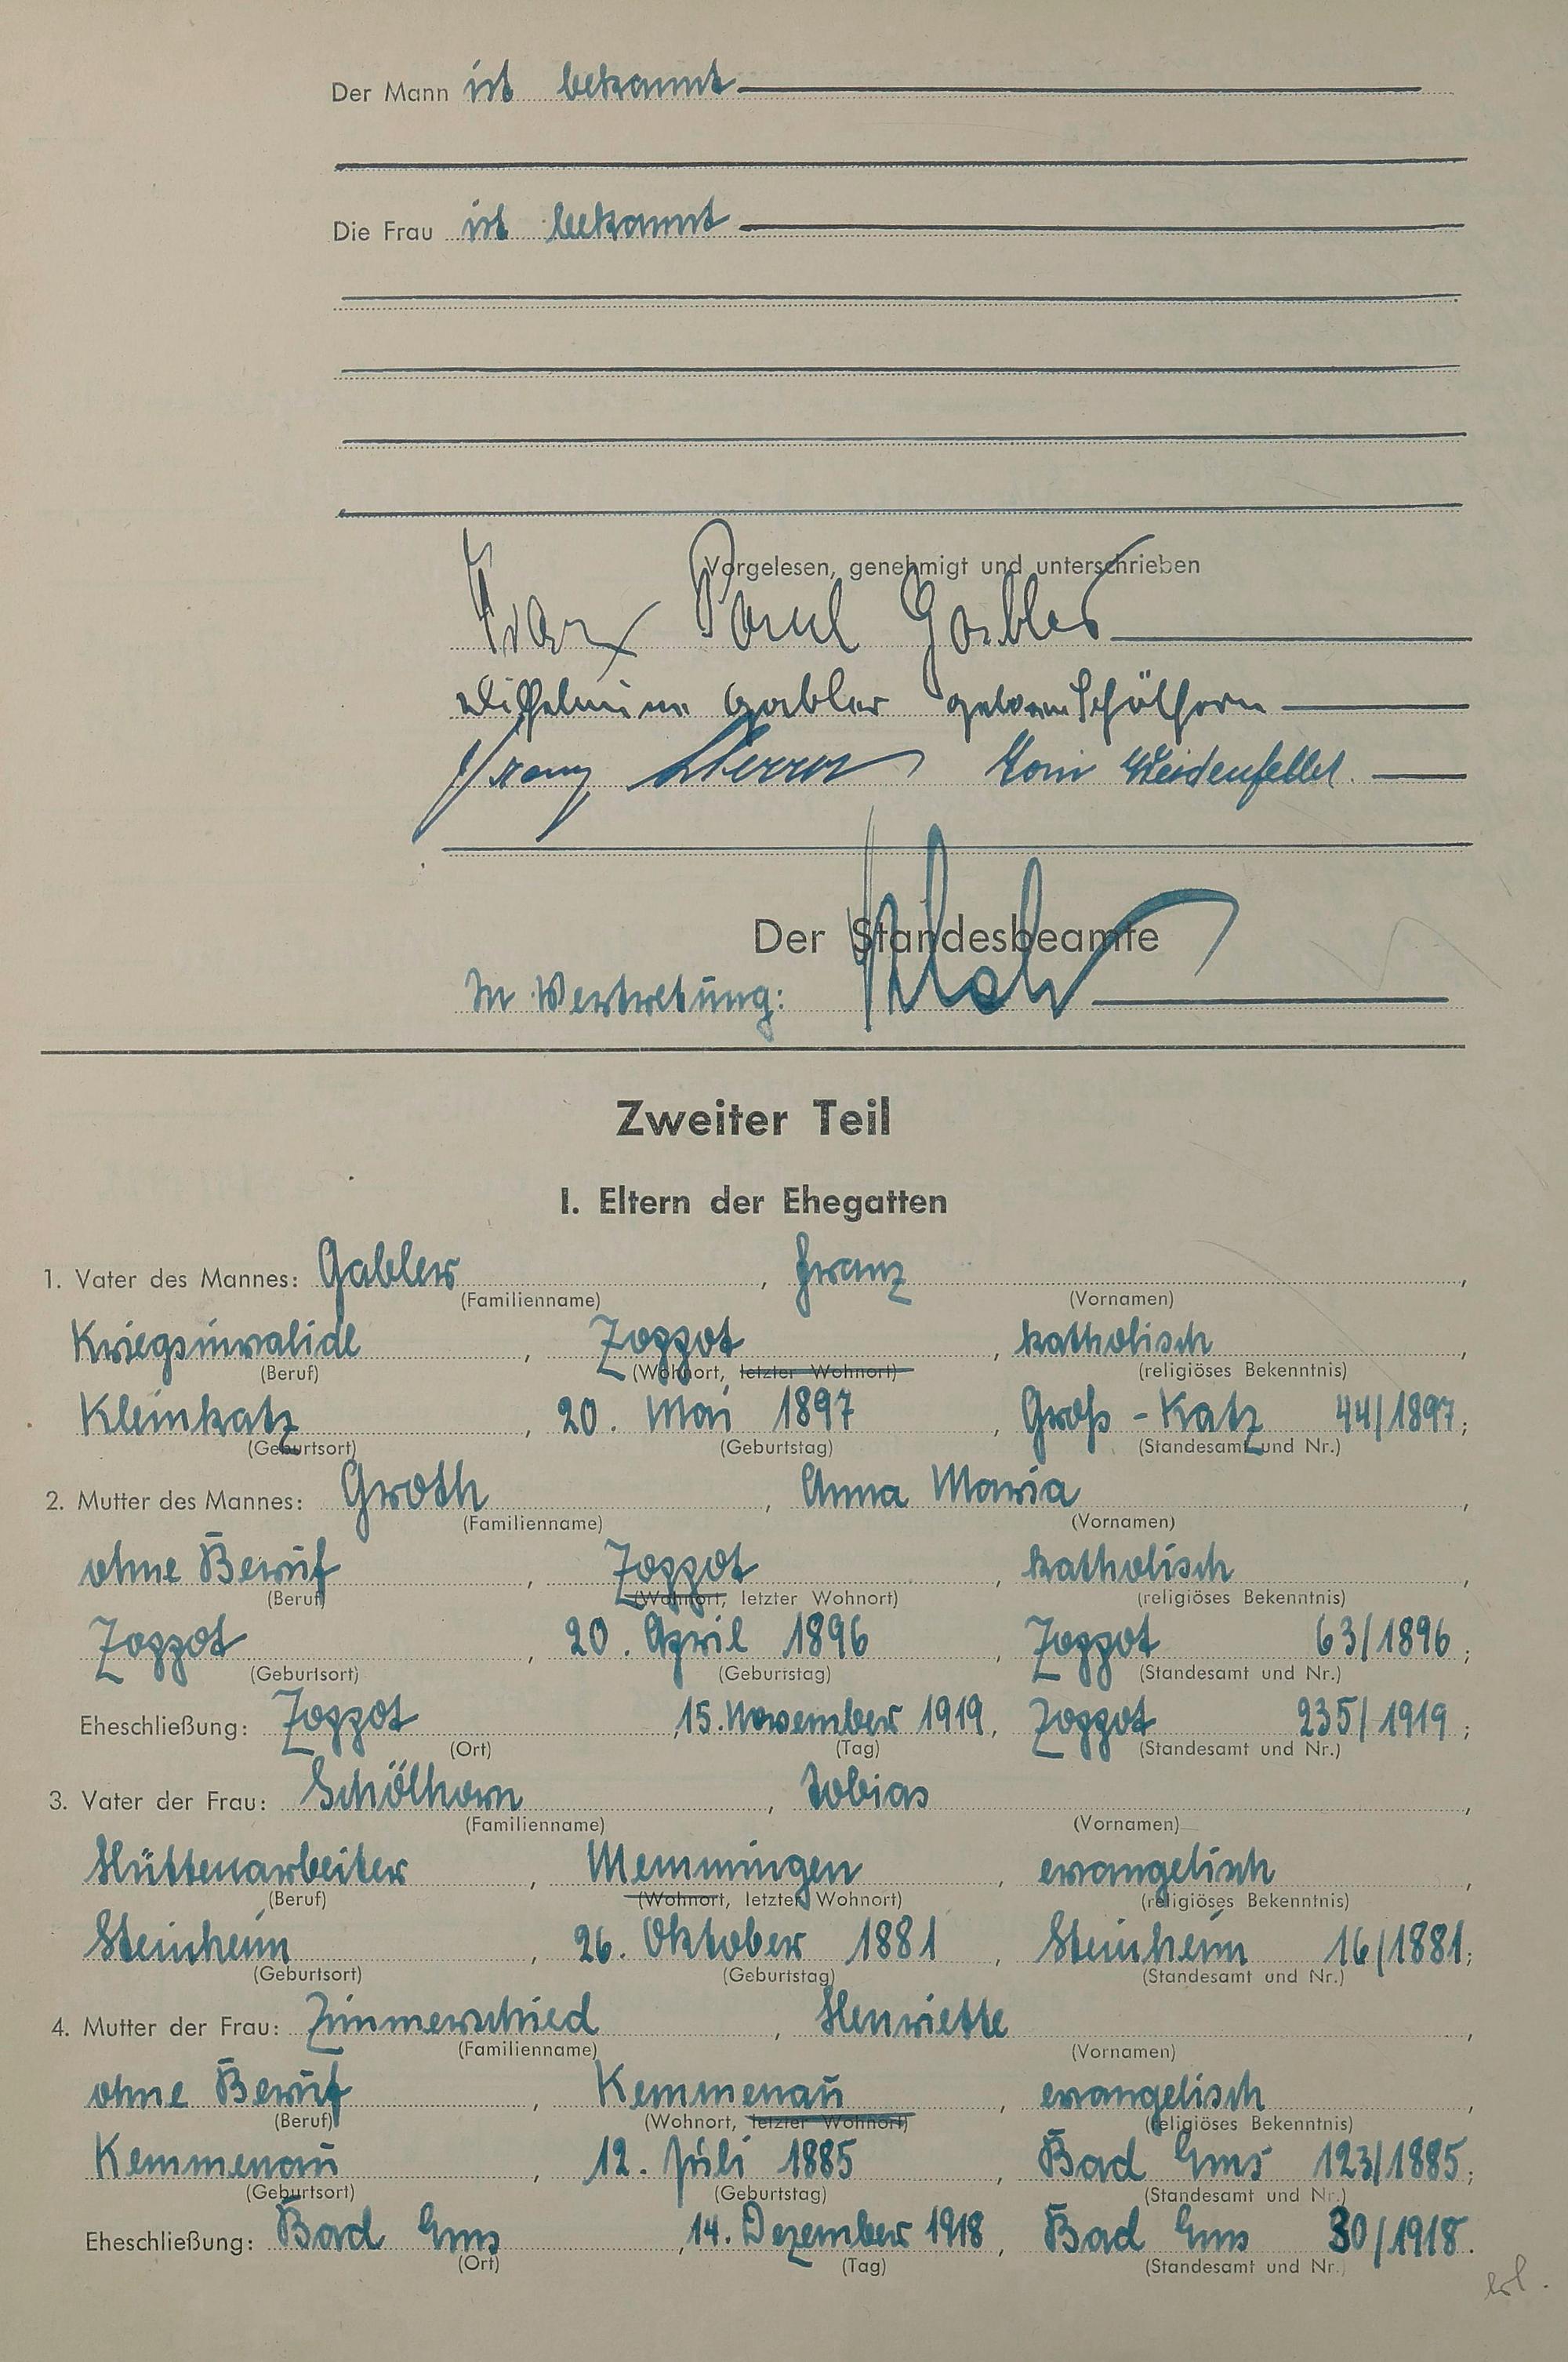 Der Mann ist bekannt
Die Frau ist bekannt
Vorgelesen, genehmigt und unterschrieben
Franz Paul Gabler
Wilhelmine Gabler geborene Schölhorn
Franz Toni Weidenfeller.
Der Standesbeamte
In Vertretung:
Zweiter Teil
I. Eltern der Ehegatten
1. Vater des Mannes: Gabler, Franz,
(Familienname) (Vornamen)
Kriegsinvalide, Zoppot, katholisch,
(Beruf) (Wohnort, letzter Wohnort) (religiöses Bekenntnis)
Kleinkatz, 20. Mai 1897, Groß-Katz 44/1897;
(Geburtsort) (Geburtstag) (Standesamt und Nr.)
2. Mutter des Mannes: Groth, Anna Maria,
(Familienname) (Vornamen)
ohne Beruf, Zoppot, katholisch,
(Beruf) (Wohnort, letzter Wohnort) (religiöses Bekenntnis)
Zoppot, 20. April 1896, Zoppot 63/1896;
(Geburtsort) (Geburtstag) (Standesamt und Nr.)
Eheschließung: Zoppot, 15. November 1919, Zoppot 235/1919;
(Ort) (Tag) (Standesamt und Nr.)
3. Vater der Frau: Schölhorn, Tobias,
(Familienname) (Vornamen)
Hüttenarbeiter, Memmingen, evangelisch,
(Beruf) (Wohnort, letzter Wohnort) (religiöses Bekenntnis)
Steinheim, 26. Oktober 1881, Steinheim 16/1881;
(Geburtsort) (Geburtstag) (Standesamt und Nr.)
4. Mutter der Frau: Zimmerschied, Henriette,
(Familienname) (Vornamen)
ohne Beruf, Kemmenau, evangelisch,
(Beruf) (Wohnort, letzter Wohnort) (religiöses Bekenntnis)
Kemmenau, 12. Juli 1885, Bad Ems 123/1885;
(Geburtsort) (Geburtstag) (Standesamt und Nr.)
Eheschließung: Bad Ems, 14. Dezember 1918, Bad Ems 30/1918.
(Ort) (Tag) (Standesamt und Nr.)
erl.